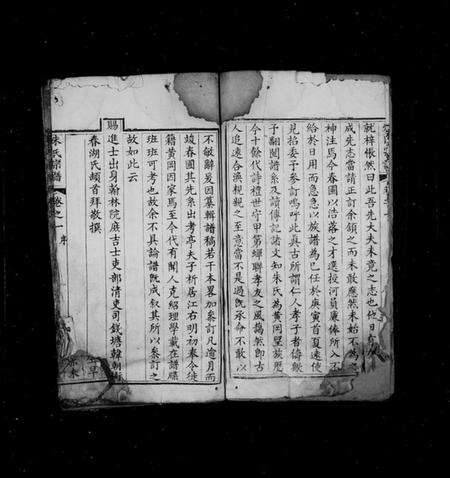 就梓悵然曰此吾先大夫未竟之志也他日
成先志當請正訂余頷之而未敢應然未始不為之
神注焉今春圃以洽河之才選授河員廉俸所入不
給於日用而急急以族譜為已任於庚寅首夏遠使
見招委予參訂嗚呼此真古所謂仁人孝子者儔歟
予翻閱譜系及讀傳記諸文知朱氏為黄岡望族歷
今十餘代詩禮世守甲第蟬聯孝友之風藹然即古
人追遠合族親親之至意當不是過既承命不敢以
不敏辭爰因纂輯譜稿若干本畧加參訂凡逾月而
竣春圃其先系出考亭夫子析居江右明初奉令徙
籍黄岡因家焉至今代有聞人克紹理學載在譜牒
班班可考也故余不具論譜既成叙其所以參訂之
故如此云
賜進士出身翰林院庶吉士吏部清吏司錢塘韓朝
春湖氏頓首拜敬撰
朱氏宗譜 卷之一 序